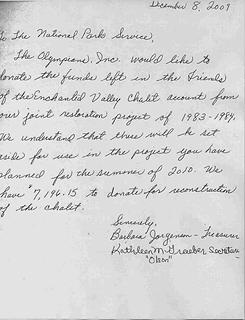 December 8, 2009
To The National Parks Service,
The Olympians, Inc. would like to
donate the funds left in the Friends
of the Enchanted Valley Chalet account from
our joint restoration project of 1983-1984.
We understand that these will be set
aside for use in the project you have
planned for the summer of 2010. We
have $7,196.15 to donate for reconstruction
of the chalet.
Sincerely,
Barbara Jorgensen - Treasurer
Kathleen M. Graeber Secretary
"Olson"